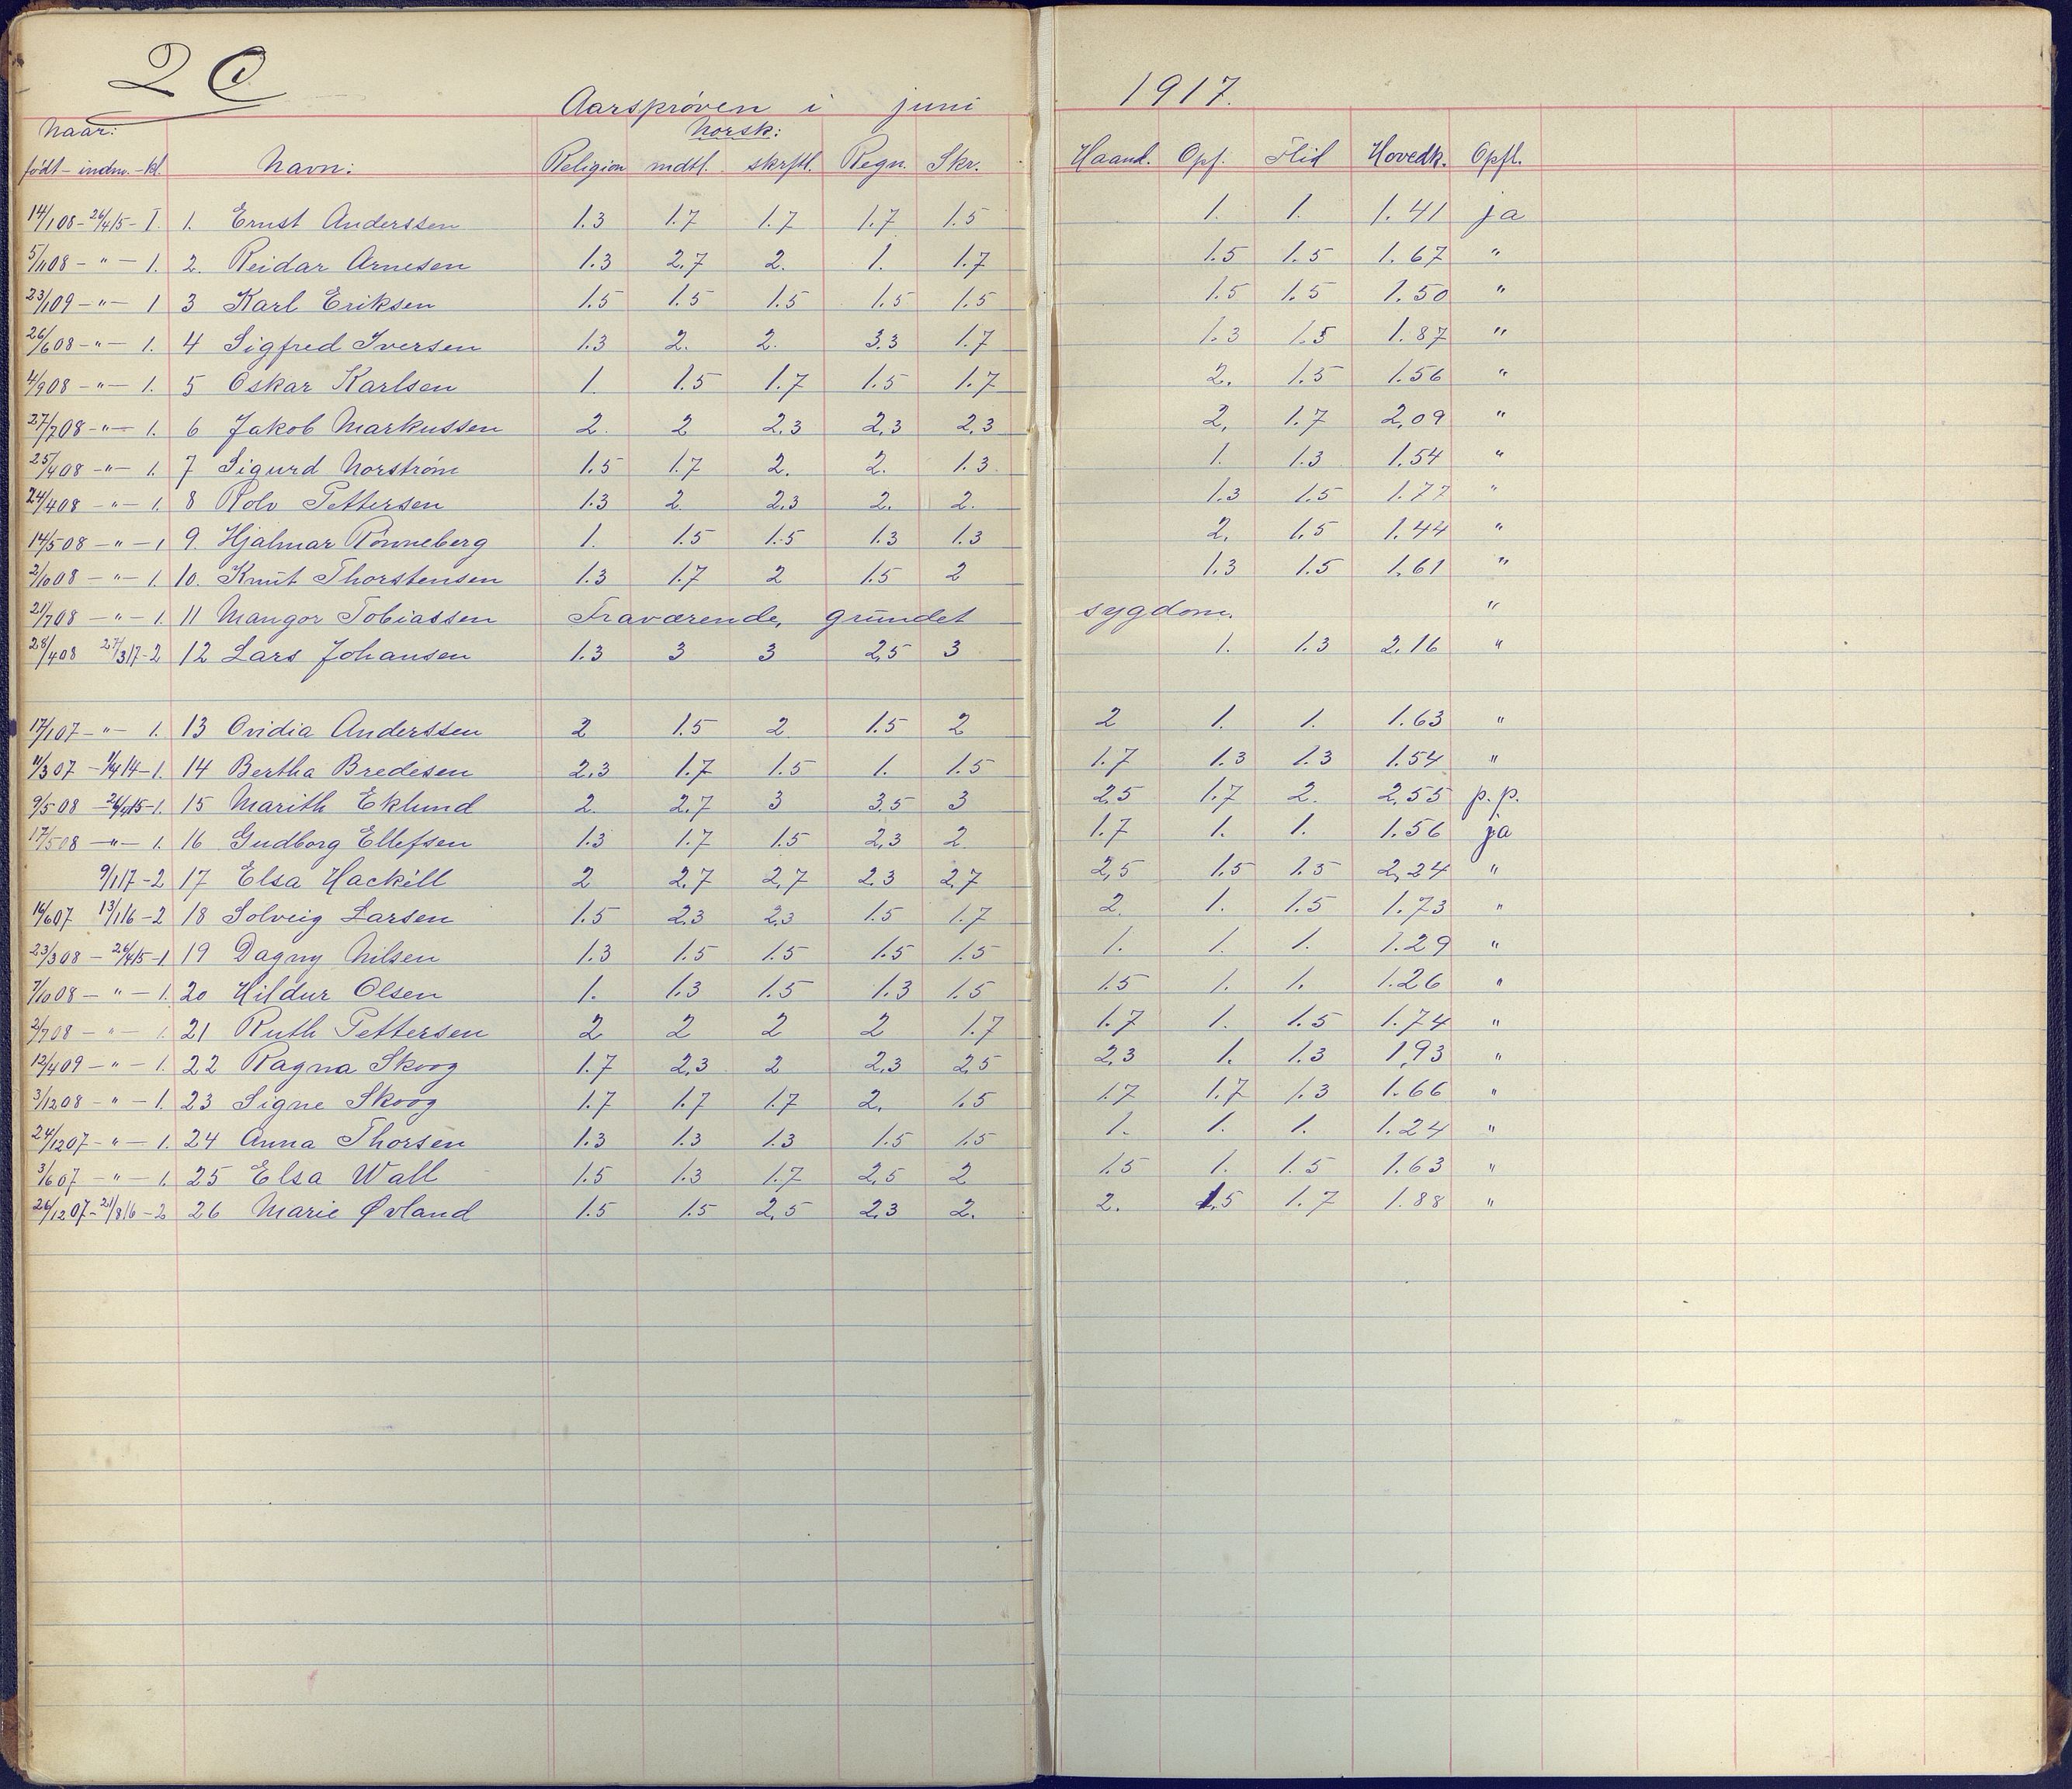 2 C
Aarsprøven i juni 1917.
Naar: Norsk:
født - indm. - kl. Navn: Religion mdtl. skrftl. Regn. Skr. Haand. Opf. Flid Hovedk. Opfl.
14/1 08 - 26/4 15 - I. 1. Ernst Anderssen 1.3 1.7 1.7 1.7 1.5 1. 1. 1.41 ja
5/11 08 - " - 1. 2. Reidar Arnesen 1.3 2.7 2. 1. 1.7 1.5 1.5 1.67 "
23/1 09 - " - 1 3 Karl Eriksen 1.5 1.5 1.5 1.5 1.5 1.5 1.5 1.50 "
26/6 08 - " - 1. 4 Sigfred Iversen 1.3 2. 2. 3.3 1.7 1.3 1.5 1.87 "
4/9 08 - " - 1. 5 Oskar Karlsen 1. 1.5 1.7 1.5 1.7 2. 1.5 1.56 "
27/7 08 - " - 1. 6 Jakob Markussen 2. 2 2.3 2.3 2.3 2. 1.7 2.09 "
25/4 08 - " - 1. 7 Sigurd Norstrøm 1.5 1.7 2. 2. 1.3 1. 1.3 1.54 "
24/4 08 - " - 1. 8 Rolv Pettersen 1.3 2. 2.3 2. 2. 1.3 1.5 1.77 "
14/5 08 - " - 1 9. Hjalmar Rønneberg 1. 1.5 1.5 1.3 1.3 2. 1.5 1.44 "
2/10 08 - " - 1. 10. Knut Thorstensen 1.3 1.7 2 1.5 2 1.3 1.5 1.61 "
21/7 08 - " - 1. 11 Mangor Tobiassen Fraværende, grundet sygdom. "
28/4 08 27/3 17 - 2 12 Lars Johansen 1.3 3 3 2.5 3 1. 1.3 2.16 "
17/1 07 - " - 1. 13 Ovidia Anderssen 2 1.5 2 1.5 2 2 1. 1. 1.63 "
11/3 07 - 1/4 14 - 1. 14 Bertha Bredesen 2.3 1.7 1.5 1. 1.5 1.7 1.3 1.3 1.54 "
9/5 08 - 26/4 15 - 1. 15 Marith Eklund 2. 2.7 3 3.5 3 2.5 1.7 2. 2.55 p.p.
17/5 08 - " - 1. 16 Gudborg Ellefsen 1.3 1.7 1.5 2.3 2 1.7 1. 1. 1.56 ja
9/1 17 - 2 17 Elsa Hackell 2 2.7 2.7 2.3 2.7 2.5 1.5 1.5 2.24 "
16/6 07 13/1 16 - 2 18 Solveig Larsen 1.5 2.3 2.3 1.5 1.7 2. 1. 1.5 1.73 "
23/3 08 - 26/4 15 - 1 19 Dagny Nilsen 1.3 1.5 1.5 1.5 1.5 1. 1. 1. 1.29 "
7/10 08 - " - 1. 20 Hildur Olsen 1. 1.3 1.5 1.3 1.5 1.5 1. 1. 1.26 "
2/7 08 - " - 1. 21 Ruth Pettersen 2 2 2 2 1.7 1.7 1. 1.5 1.74 "
12/4 09 - " - 1. 22 Ragna Skoog 1.7 2.3 2 2.3 2.5 2.3 1. 1.3 1.93 "
3/12 08 - " - 1. 23 Signe Skoog 1.7 1.7 1.7 2. 1.5 1.7 1.7 1.3 1.66 "
24/12 07 - " - 1. 24 Anna Thorsen 1.3 1.3 1.3 1.5 1.5 1. 1. 1. 1.24 "
3/6 07 - " - 1. 25 Elsa Wall 1.5 1.3 1.7 2.5 2 1.5 1. 1.5 1.63 "
26/12 07 - 21/8 16 - 2 26 Marie Øvland 1.5 1.5 2.5 2.3 2. 2. 1.5 1.7 1.88 "